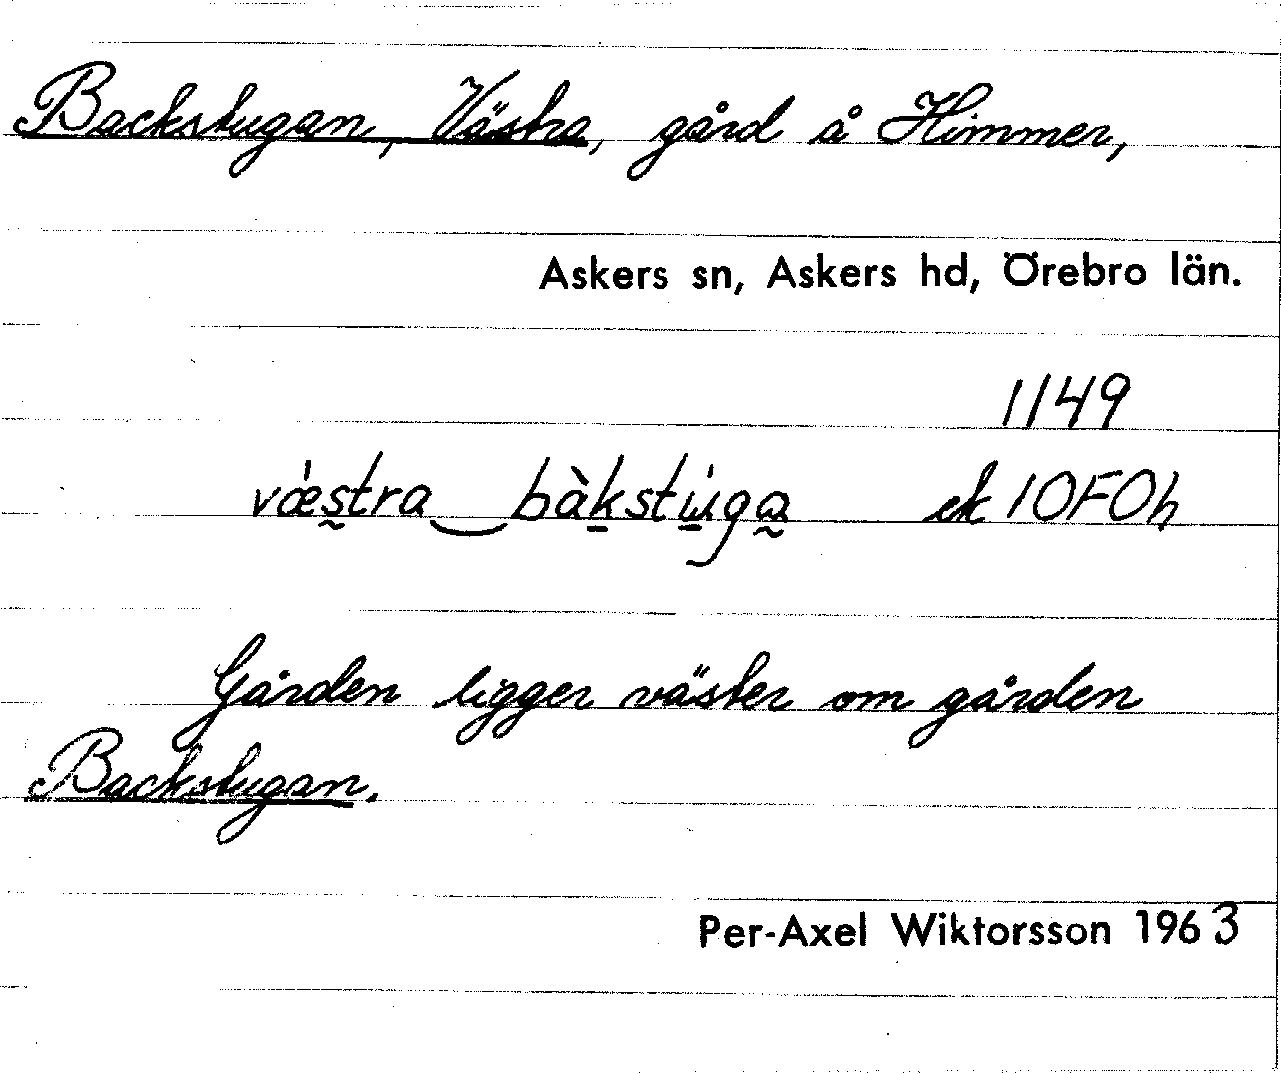 Backstugan, Västra, gård å Himmer,
Askers sn, Askers hd, Örebro län.
1149
væ̀stra‿bàkstu̇ga ek 10F0h
Gården ligger väster om gården
Backstugan.
Per-Axel Wiktorsson 1963